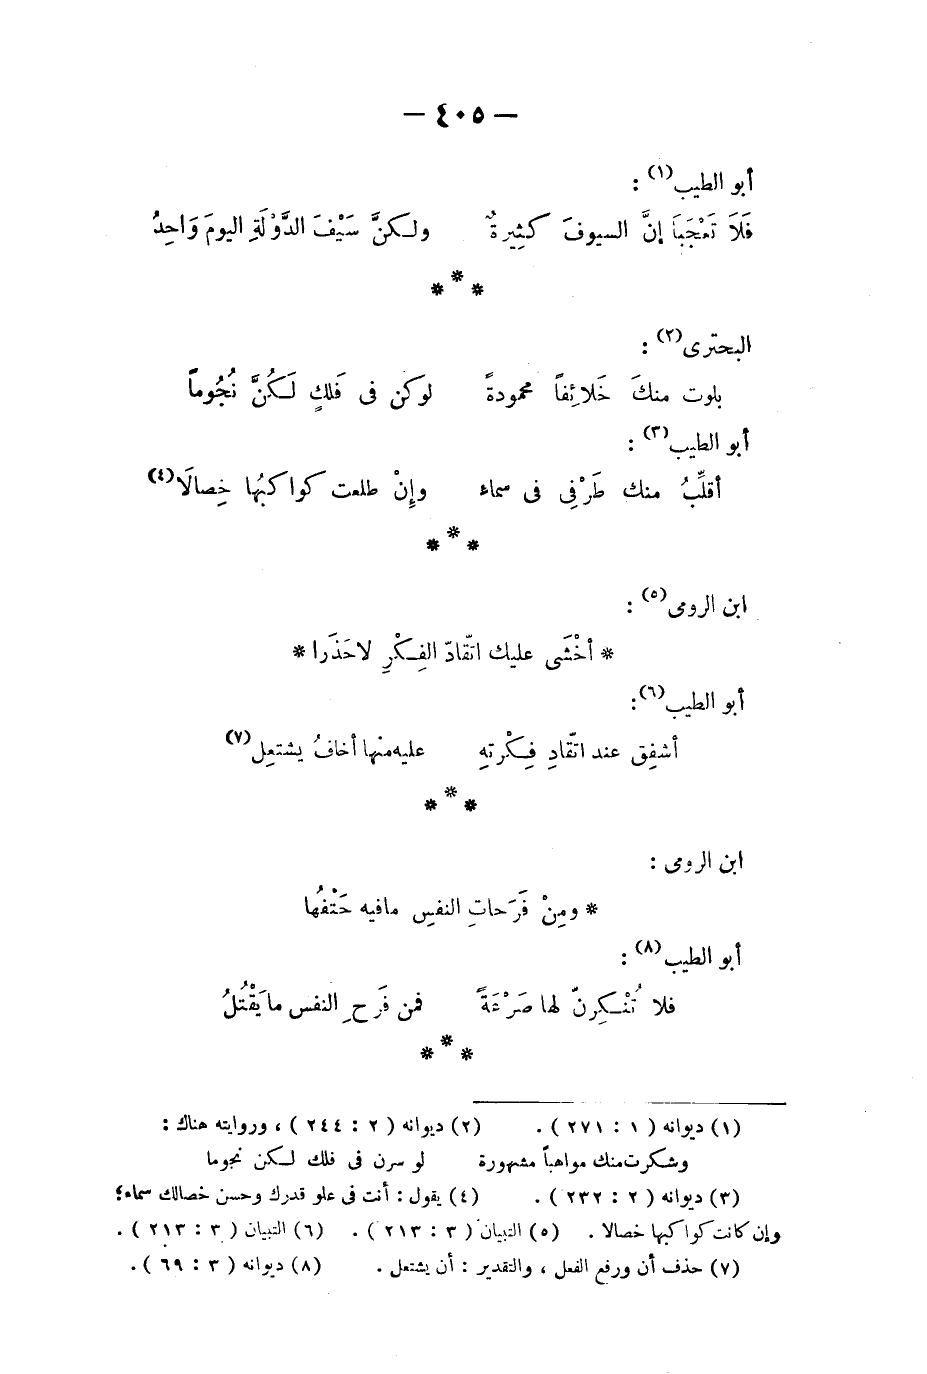 — ٤٠٥ —
أبو الطيب(١) :
فَلَا تَعْجَبَا إنَّ السيوفَ كثِيرةٌ ولكنَّ سَيْفَ الدَّوْلَةِ اليومَ وَاحِدُ
* * *
البحترى(٢) :
بلوت منكَ خَلائِفاً محمودةً لوكن فى فَلكٍ لَكُنَّ نُجُوماً
أبو الطيب(٣) :
أقلِّبُ منك طَرْفِى فى سماء وإِنْ طلعت كواكبُها خِصالَا(٤)
* * *
ابن الرومى(٥) :
* أخْشَى عليك اتّقادّ الفِكْرِ لاحَذَرا *
أبو الطيب(٦) :
أشفِق عند اتّقادِ فِكْرتهِ عليه منْها أخافُ يشتعِل(٧)
* * *
ابن الرومى :
* ومِنْ فَرَحاتِ النفسِ مافيه حَتْفُها
أبو الطيب(٨) :
فلا تُنْكِرنّ لها صَرْعَةً فمن فَرحِ النفس ما يَقْتُلُ
* * *
(١) ديوانه ( ١ : ٢٧١ ) . (٢) ديوانه ( ٢ : ٢٤٤ ) ، وروايته هناك :
وشكرت منك مواهباً مشهورة لو سرن فى فلك لكن نجوما
(٣) ديوانه ( ٢ : ٢٣٢ ) . (٤) يقول : أنت فى علو قدرك وحسن خصالك سماء؛
وإن كانت كواكبها خصالا . (٥) التبيان ( ٣ : ٢١٣ ) . (٦) التبيان ( ٣ : ٢١٣ ) .
(٧) حذف أن ورفع الفعل ، والتقدير : أن يشتعل . (٨) ديوانه ( ٣ : ٦٩ ) .